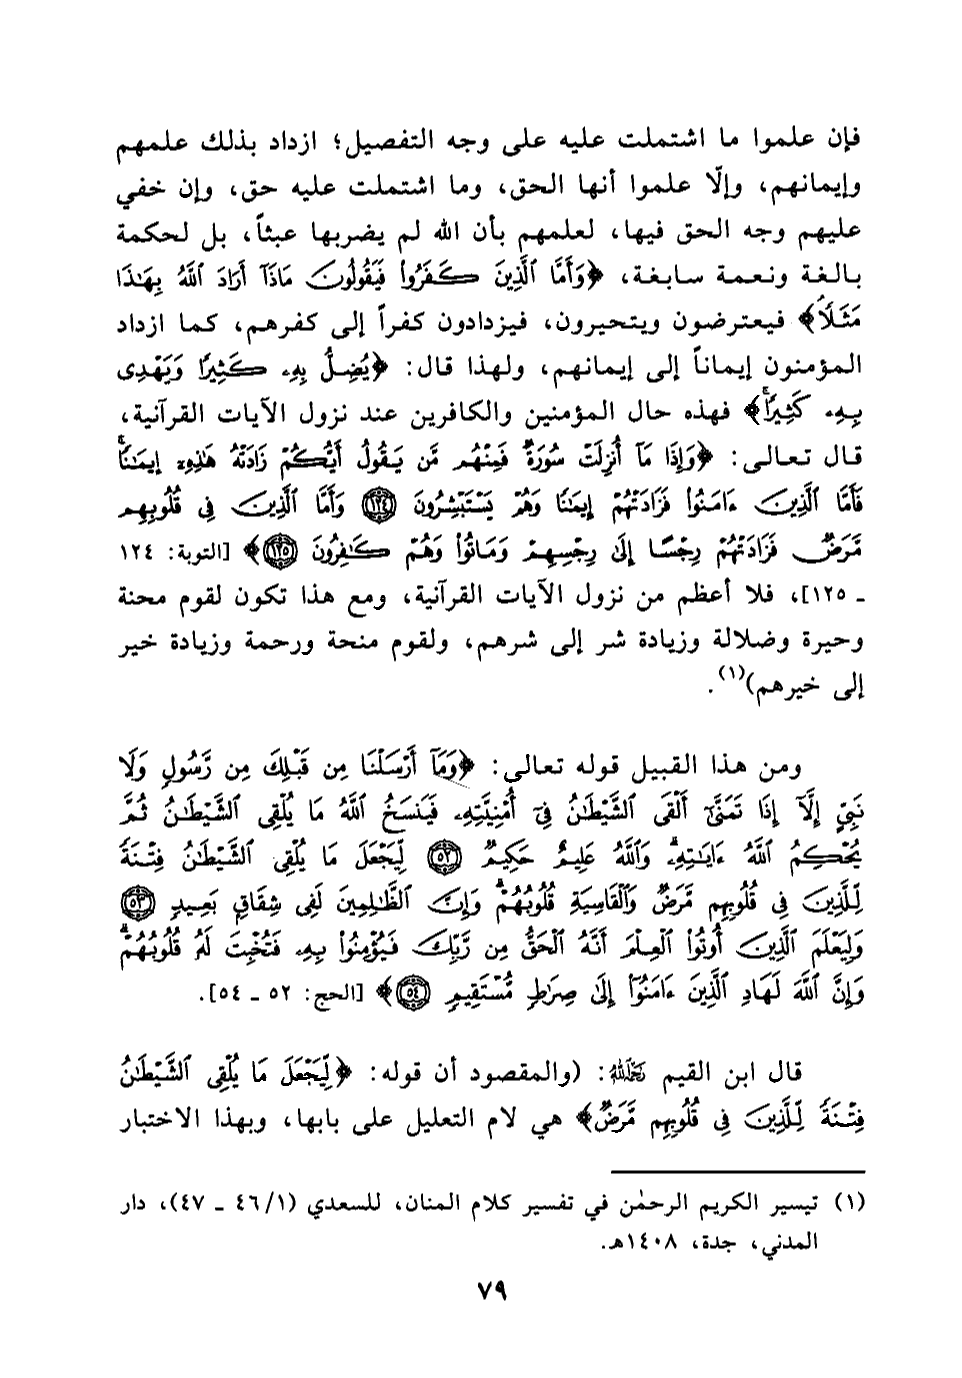 فإن علموا ما اشتملت عليه على وجه التفصيل؛ ازداد بذلك علمهم
وإيمانهم، وإلّا علموا أنها الحق، وما اشتملت عليه حق، وإن خفي
عليهم وجه الحق فيها، لعلمهم بأن الله لم يضربها عبثاً، بل لحكمة
بالغة ونعمة سابغة، ﴿وَأَمَّا ٱلَّذِينَ كَفَرُوا۟ فَيَقُولُونَ مَاذَآ أَرَادَ ٱللَّهُ بِهَـٰذَا
مَثَلًاۘ﴾ فيعترضون ويتحيرون، فيزدادون كفراً إلى كفرهم، كما ازداد
المؤمنون إيماناً إلى إيمانهم، ولهذا قال: ﴿يُضِلُّ بِهِۦ كَثِيرًا وَيَهْدِى
بِهِۦ كَثِيرًاۚ﴾ فهذه حال المؤمنين والكافرين عند نزول الآيات القرآنية،
قال تعالى: ﴿وَإِذَا مَآ أُنزِلَتْ سُورَةٌ فَمِنْهُم مَّن يَقُولُ أَيُّكُمْ زَادَتْهُ هَـٰذِهِۦٓ إِيمَـٰنًاۚ
فَأَمَّا ٱلَّذِينَ ءَامَنُوا۟ فَزَادَتْهُمْ إِيمَـٰنًا وَهُمْ يَسْتَبْشِرُونَ ﴿١٢٤﴾ وَأَمَّا ٱلَّذِينَ فِى قُلُوبِهِم
مَّرَضٌ فَزَادَتْهُمْ رِجْسًا إِلَىٰ رِجْسِهِمْ وَمَاتُوا۟ وَهُمْ كَـٰفِرُونَ ﴿١٢٥﴾﴾ [التوبة: ١٢٤
ـ ١٢٥]، فلا أعظم من نزول الآيات القرآنية، ومع هذا تكون لقوم محنة
وحيرة وضلالة وزيادة شر إلى شرهم، ولقوم منحة ورحمة وزيادة خير
إلى خيرهم)(١).
ومن هذا القبيل قوله تعالى: ﴿وَمَآ أَرْسَلْنَا مِن قَبْلِكَ مِن رَّسُولٍ وَلَا
نَبِىٍّ إِلَّآ إِذَا تَمَنَّىٰٓ أَلْقَى ٱلشَّيْطَـٰنُ فِىٓ أُمْنِيَّتِهِۦ فَيَنسَخُ ٱللَّهُ مَا يُلْقِى ٱلشَّيْطَـٰنُ ثُمَّ
يُحْكِمُ ٱللَّهُ ءَايَـٰتِهِۦۗ وَٱللَّهُ عَلِيمٌ حَكِيمٌ ﴿٥٢﴾ لِّيَجْعَلَ مَا يُلْقِى ٱلشَّيْطَـٰنُ فِتْنَةً
لِّلَّذِينَ فِى قُلُوبِهِم مَّرَضٌ وَٱلْقَاسِيَةِ قُلُوبُهُمْۗ وَإِنَّ ٱلظَّـٰلِمِينَ لَفِى شِقَاقٍۭ بَعِيدٍ ﴿٥٣﴾
وَلِيَعْلَمَ ٱلَّذِينَ أُوتُوا۟ ٱلْعِلْمَ أَنَّهُ ٱلْحَقُّ مِن رَّبِّكَ فَيُؤْمِنُوا۟ بِهِۦ فَتُخْبِتَ لَهُۥ قُلُوبُهُمْۗ
وَإِنَّ ٱللَّهَ لَهَادِ ٱلَّذِينَ ءَامَنُوٓا۟ إِلَىٰ صِرَٰطٍ مُّسْتَقِيمٍ ﴿٥٤﴾﴾ [الحج: ٥٢ ـ ٥٤].
قال ابن القيم رحمه الله: (والمقصود أن قوله: ﴿لِّيَجْعَلَ مَا يُلْقِى ٱلشَّيْطَـٰنُ
فِتْنَةً لِّلَّذِينَ فِى قُلُوبِهِم مَّرَضٌ﴾ هي لام التعليل على بابها، وبهذا الاختبار
(١) تيسير الكريم الرحمٰن في تفسير كلام المنان، للسعدي (٤٦/١ ـ ٤٧)، دار
المدني، جدة، ١٤٠٨هـ.
٧٩